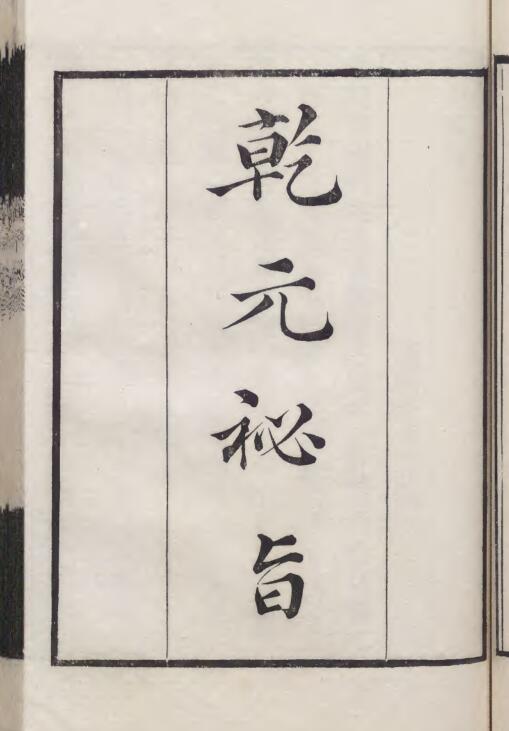 乾元祕旨